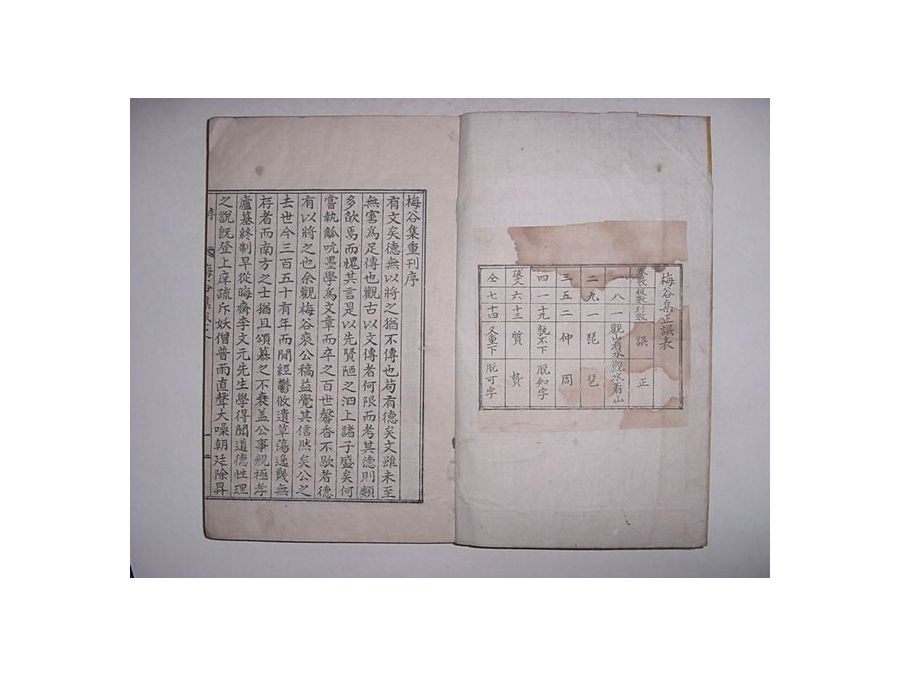 梅谷集正誤表
卷數 板數 行數 誤 正
一 八 一 觀山看水 觀水看山
二 九 一 琵 琶
三 五 二 仲 周
四 一 十九 孰不下 脫知字
跋文 六 十三 質 贊
仝 七 十四 又重下 脫可字
梅谷集重刊序
有文矣德無以將之猶不傳也苟有德矣文雖未至
無害爲足傳也觀古以文傳者何限而考其德則類
多歉焉而愧其言是以先賢陋之泗上諸子盛矣何
嘗執觚吮墨學爲文章而卒之百世馨香不歇者德
有以將之也余觀梅谷裵公稿益覺其信然矣公之
去世今三百五十有年而閒經鬱攸遺草蕩逸幾無
存者而南方之士猶且頌慕之不衰盖公事親極孝
廬墓終制早從晦齋李文元先生學得聞道德性理
之說旣登上庠疏斥妖僧普雨直聲大噪朝廷除昇
序